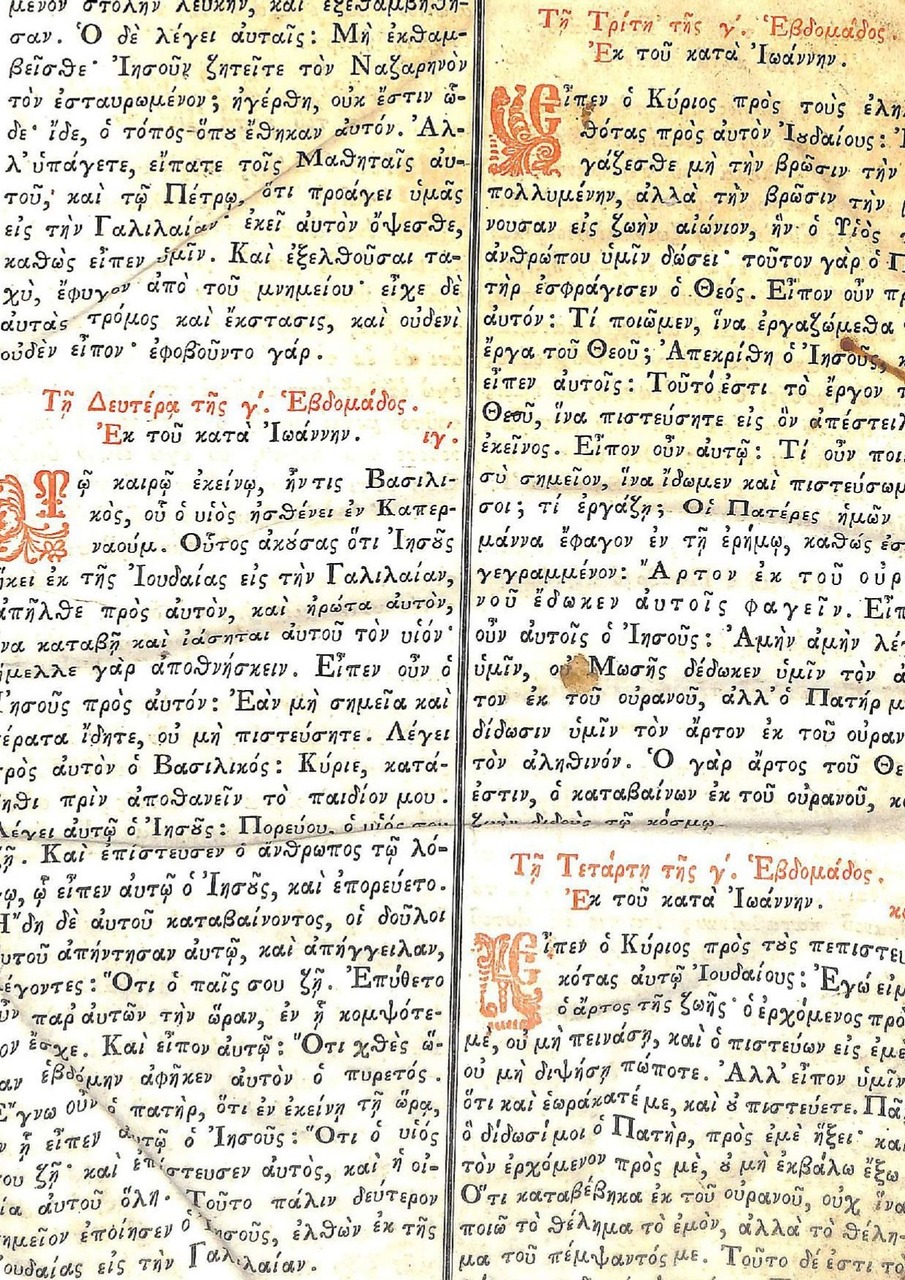 μενον στολὴν λευκὴν, καὶ ἐξεθαμβήθη-
σαν. Ὁ δὲ λέγει αὐταῖς: Μὴ ἐκθαμ-
βεῖσθε· Ἰησοῦν ζητεῖτε τὸν Ναζαρηνὸν
τὸν ἐσταυρωμένον; ἠγέρθη, οὐκ ἔστιν ὧ-
δε· ἴδε, ὁ τόπος ὅπου ἔθηκαν αὐτόν. Ἀλ-
λ' ὑπάγετε, εἴπατε τοῖς Μαθηταῖς αὐ-
τοῦ, καὶ τῷ Πέτρῳ, ὅτι προάγει ὑμᾶς
εἰς τὴν Γαλιλαίαν· ἐκεῖ αὐτὸν ὄψεσθε,
καθὼς εἶπεν ὑμῖν. Καὶ ἐξελθοῦσαι τα-
χὺ, ἔφυγον ἀπὸ τοῦ μνημείου· εἶχε δὲ
αὐτὰς τρόμος καὶ ἔκστασις, καὶ οὐδενὶ
οὐδὲν εἶπον· ἐφοβοῦντο γάρ.
Τῇ Δευτέρᾳ τῆς γ'. Ἑβδομάδος.
Ἐκ τοῦ κατὰ Ἰωάννην. ιγ'.
Τῷ καιρῷ ἐκείνῳ, ἦν τις Βασιλι-
κὸς, οὗ ὁ υἱὸς ἠσθένει ἐν Καπερ-
ναούμ. Οὗτος ἀκούσας ὅτι Ἰησοῦς
ἥκει ἐκ τῆς Ἰουδαίας εἰς τὴν Γαλιλαίαν,
ἀπῆλθε πρὸς αὐτὸν, καὶ ἠρώτα αὐτὸν,
να καταβῇ καὶ ἰάσηται αὐτοῦ τὸν υἱόν·
ἤμελλε γὰρ ἀποθνήσκειν. Εἶπεν οὖν ὁ
Ἰησοῦς πρὸς αὐτόν: Ἐὰν μὴ σημεῖα καὶ
τέρατα ἴδητε, οὐ μὴ πιστεύσητε. Λέγει
πρὸς αὐτὸν ὁ Βασιλικός: Κύριε, κατά-
βηθι πρὶν ἀποθανεῖν τὸ παιδίον μου.
Λέγει αὐτῷ ὁ Ἰησοῦς: Πορεύου, ὁ υἱός σου
ζῇ. Καὶ ἐπίστευσεν ὁ ἄνθρωπος τῷ λό-
γῳ, ᾧ εἶπεν αὐτῷ ὁ Ἰησοῦς, καὶ ἐπορεύετο.
Ἤδη δὲ αὐτοῦ καταβαίνοντος, οἱ δοῦλοι
αὐτοῦ ἀπήντησαν αὐτῷ, καὶ ἀπήγγειλαν,
λέγοντες: Ὅτι ὁ παῖς σου ζῇ. Ἐπύθετο
οὖν παρ' αὐτῶν τὴν ὥραν, ἐν ᾗ κομψότε-
ρον ἔσχε. Καὶ εἶπον αὐτῷ: Ὅτι χθὲς ὥ-
ραν ἑβδόμην ἀφῆκεν αὐτὸν ὁ πυρετός.
Ἔγνω οὖν ὁ πατὴρ, ὅτι ἐν ἐκείνῃ τῇ ὥρᾳ,
ἐν ᾗ εἶπεν αὐτῷ ὁ Ἰησοῦς: Ὅτι ὁ υἱός
σου ζῇ· καὶ ἐπίστευσεν αὐτὸς, καὶ ἡ οἰ-
κία αὐτοῦ ὅλη. Τοῦτο πάλιν δεύτερον
σημεῖον ἐποίησεν ὁ Ἰησοῦς, ἐλθὼν ἐκ τῆς
Ἰουδαίας εἰς τὴν Γαλιλαίαν.
Τῇ Τρίτῃ τῆς γ'. Ἑβδομάδος.
Ἐκ τοῦ κατὰ Ἰωάννην.
Εἶπεν ὁ Κύριος πρὸς τοὺς ἐλη
θότας πρὸς αὐτὸν Ἰουδαίους:
γάζεσθε μὴ τὴν βρῶσιν τὴν
πολλυμένην, ἀλλὰ τὴν βρῶσιν τὴν
νουσαν εἰς ζωὴν αἰώνιον, ἣν ὁ Υἱὸς
ἀνθρώπου ὑμῖν δώσει· τοῦτον γὰρ ὁ Π
τὴρ ἐσφράγισεν ὁ Θεός. Εἶπον οὖν πρ
αὐτόν: Τί ποιῶμεν, ἵνα ἐργαζώμεθα
ἔργα τοῦ Θεοῦ; Ἀπεκρίθη ὁ Ἰησοῦς,
εἶπεν αὐτοῖς: Τοῦτό ἐστι τὸ ἔργον τ
Θεοῦ, ἵνα πιστεύσητε εἰς ὃν ἀπέστειλ
ἐκεῖνος. Εἶπον οὖν αὐτῷ: Τί οὖν ποι
σὺ σημεῖον, ἵνα ἴδωμεν καὶ πιστεύσωμ
σοι; τί ἐργάζῃ; Οἱ Πατέρες ἡμῶν
μάννα ἔφαγον ἐν τῇ ἐρήμῳ, καθώς ἐσ
γεγραμμένον: Ἄρτον ἐκ τοῦ οὐρ
νοῦ ἔδωκεν αὐτοῖς φαγεῖν. Εἶπ
οὖν αὐτοῖς ὁ Ἰησοῦς: Ἀμὴν ἀμὴν λέ-
ὑμῖν, οὐ Μωσῆς δέδωκεν ὑμῖν τὸν ἄ
τον ἐκ τοῦ οὐρανοῦ, ἀλλ' ὁ Πατήρ μ
δίδωσιν ὑμῖν τὸν ἄρτον ἐκ τοῦ οὐραν
τὸν ἀληθινόν. Ὁ γὰρ ἄρτος τοῦ Θε
ἐστιν, ὁ καταβαίνων ἐκ τοῦ οὐρανοῦ, κα
ζωὴν διδοὺς τῷ κόσμῳ.
Τῇ Τετάρτῃ τῆς γ'. Ἑβδομάδος.
Ἐκ τοῦ κατὰ Ἰωάννην.
Εἶπεν ὁ Κύριος πρὸς τοὺς πεπιστευ
κότας αὐτῷ Ἰουδαίους: Ἐγώ εἰμ
ὁ ἄρτος τῆς ζωῆς· ὁ ἐρχόμενος πρὸ
μὲ, οὐ μὴ πεινάσῃ, καὶ ὁ πιστεύων εἰς ἐμὲ
οὐ μὴ διψήσῃ πώποτε. Ἀλλ' εἶπον ὑμῖν
ὅτι καὶ ἑωράκατέ με, καὶ οὐ πιστεύετε. Πᾶ
ὃ δίδωσί μοι ὁ Πατὴρ, πρὸς ἐμὲ ἥξει· καὶ
τὸν ἐρχόμενον πρὸς μὲ, οὐ μὴ ἐκβάλω ἔξω
Ὅτι καταβέβηκα ἐκ τοῦ οὐρανοῦ, οὐχ ἵνα
ποιῶ τὸ θέλημα τὸ ἐμὸν, ἀλλὰ τὸ θέλη-
μα τοῦ πέμψαντός με. Τοῦτο δέ ἐστι τὸ